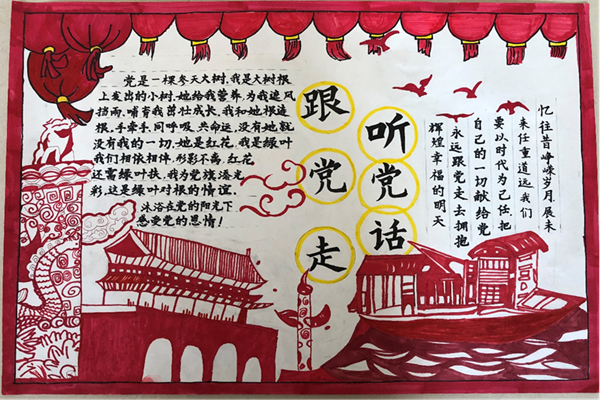 党是一棵参天大树,我是大树根
上发出的小树,她给我营养,为我遮风
挡雨,哺育我茁壮成长,我和她根连
根,手牵手,同呼吸,共命运,没有她就
没有我的一切,她是红花,我是绿叶
我们相依相伴,形影不离,红花
还需绿叶扶,我为党旗添光
彩,这是绿叶对根的情谊,
沐浴在党的阳光下
感受党的恩情!
听党话
跟党走
忆往昔峥嵘岁月展未
来任重道远我们
要以时代为己任把
自己的一切献给党
永远跟党走去拥抱
辉煌幸福的明天